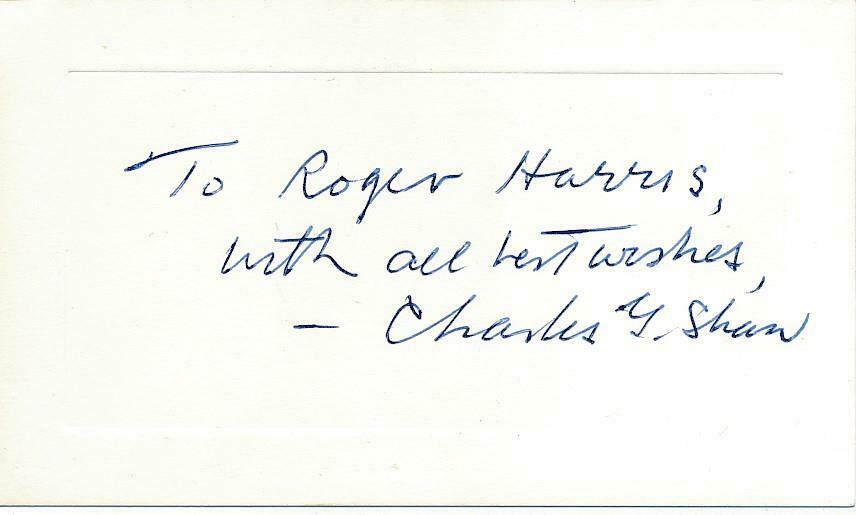 To Roger Harris,
with all best wishes,
— Charles G. Shaw